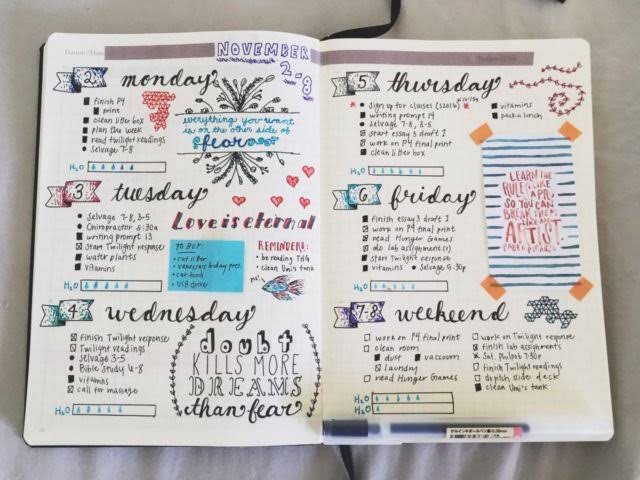 NOVEMBER
2-8
2 monday
finish P4
print
clean litter box
plan the week
read twilight readings
Selvage 7-8
H2O
everything you want
is on the other side of
fear
3 tuesday
Selvage 7-8, 3-5
Chiropractor 6:30a
writing prompt 13
Start Twilight response
water plants
vitamins
H2O
Love is eternal
TO BUY:
cat litter
cat food
USB drive
REMINDERS:
be reading THG
clean Umi's tank
4 wednesday
finish Twilight response
Twilight readings
Selvage 3-5
Bible Study 6-8
vitamins
call for massage
H2O
doubt
KILLS MORE
DREAMS
than fear
5 thursday
sign up for classes
writing prompt 14
selvage 7-8, 3-5
start essay 3 draft 2
work on P4 final print
clean litter box
vitamins
pack a lunch
H2O
6 friday
finish essay 3 draft 2
work on P4 final print
read Hunger Games
do lab assignment(s)
start Twilight response
vitamins
Selvage 6:30p
H2O
LEARN THE
RULES LIKE
A PRO,
SO YOU CAN
BREAK THEM
LIKE AN
ARTIST.
PABLO PICASSO
7-8 weekend
work on P4 final print
clean room
dust
vacuum
laundry
read Hunger Games
work on Twilight response
finish lab assignments
finish Twilight readings
clean Umi's tank
H2O